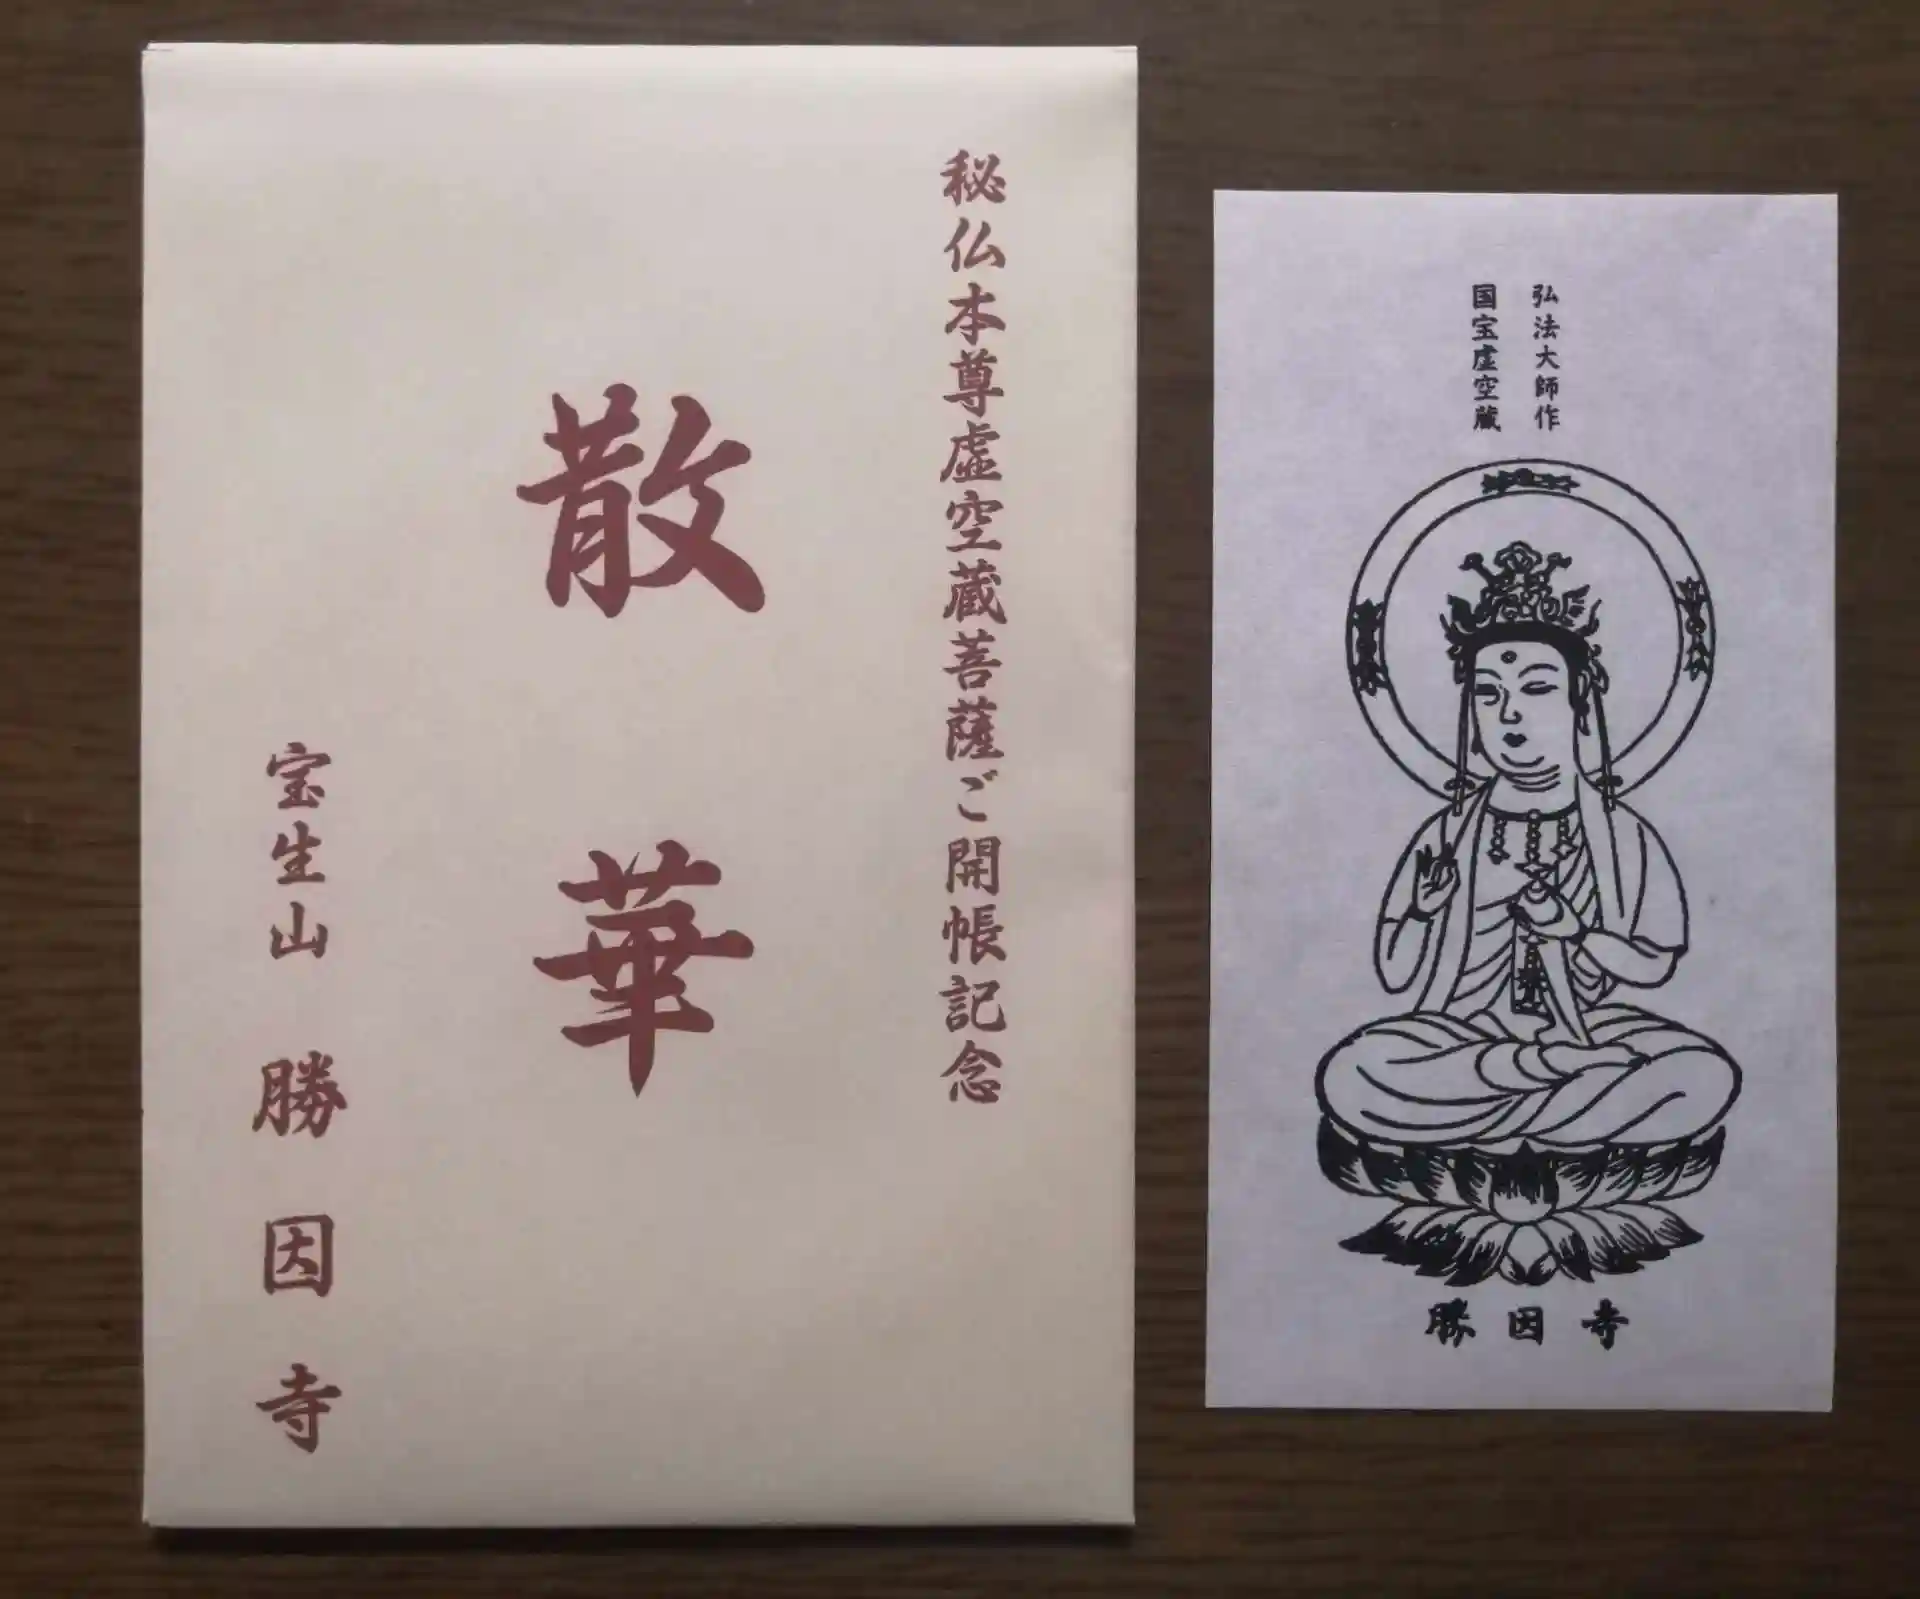 秘仏本尊虚空蔵菩薩ご開帳記念
散華
宝生山 勝因寺
弘法大師作
国宝虚空蔵
勝因寺